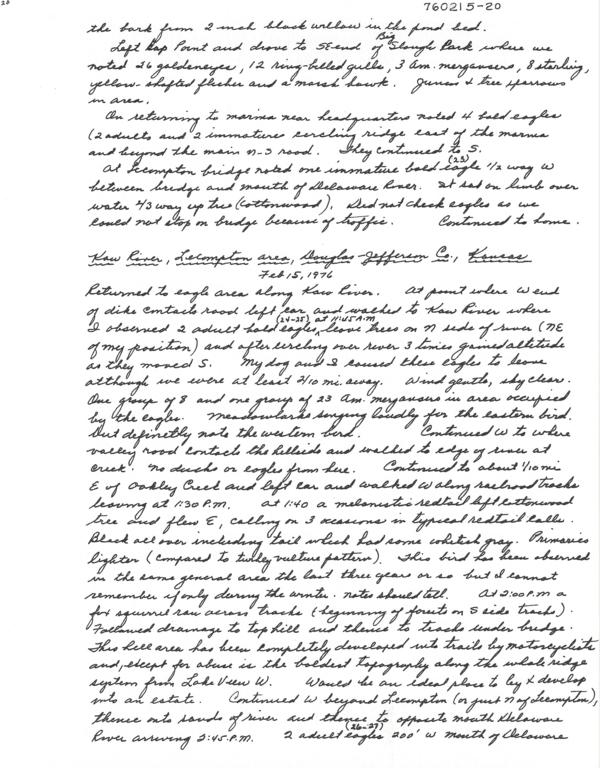 28
760215-20
the bark from 2 inch black willow in the pond bed.
Left Rap Point and drove to SE end of Big Slough Park where we
noted 26 goldeneyes, 12 ring-billed gulls, 3 Am. mergansers, 8 starling,
yellow-shafted flicker and a marsh hawk. Juncos & tree sparrows
in area.
On returning to marina near headquarters noted 4 bald eagles
(2 adults and 2 immature circling ridge east of the marina
and beyond the main N-S road. They continued to S.
At Lecompton bridge noted one immature bald eagle (23) 1/2 way W
between bridge and mouth of Delaware River. It sat on limb over
water 2/3 way up tree (cottonwood). Did not check eagles as we
could not stop on bridge because of traffic. Continued to home.
Kaw River, Lecompton area, Douglas-Jefferson Co., Kansas
Feb 15, 1976
Returned to eagle area along Kaw River. At point where W end
of dike contacts road left car and walked to Kaw River where
I observed 2 adult bald eagles (24-25) at 11:45 A.M. leave trees on N side of river (NE
of my position) and after circling over river 3 times gained altitude
as they moved S. My dog and I caused these eagles to leave
although we were at least 2/10 mi. away. Wind gentle, sky clear.
One group of 8 and one group of 23 Am. mergansers in area occupied
by the eagles. Meadowlarks singing loudly for the eastern bird.
but definitely note the western bird. Continued W to where
valley road contacts the hillside and walked to edge of river at
creek. No ducks or eagles from here. Continued to about 1/10 mi
E of Oakley Creek and left car and walked W along railroad tracks
leaving at 1:30 P.M. At 1:40 a melanistic redtail left cottonwood
tree and flew E, calling on 3 occasions in typical redtail calls.
Black all over including tail which had some whitish gray. Primaries
lighter (compared to turkey vulture pattern). This bird has been observed
in the same general area the last three years or so but I cannot
remember if only during the winter. Notes should tell. At 2:00 P.M. a
fox squirrel ran across tracks (beginning of forests on S side tracks).
Followed drainage to top hill and thence to tracks under bridge.
This hill area has been completely developed into trails by motorcyclists
and, except for abuse is the boldest topography along the whole ridge
system from Lake View W. Would be an ideal place to buy & develop
into an estate. Continued W beyond Lecompton (or just N of Lecompton),
thence onto sands of river and thence to opposite mouth Delaware
River arriving 2:45 P.M. 2 adult eagles (26-27) 200' W mouth of Delaware